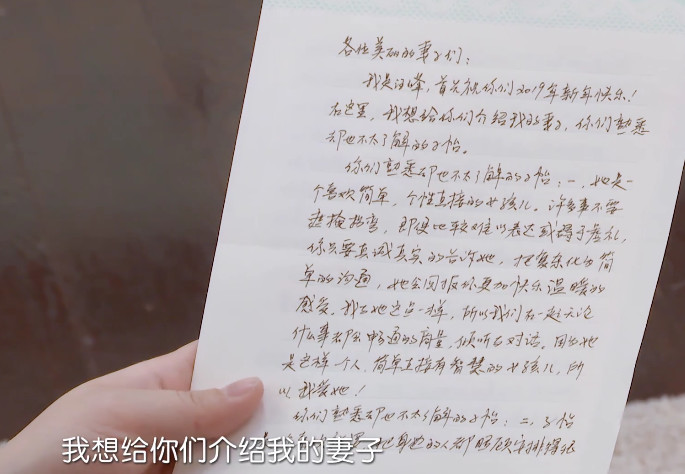 各位美丽的妻子们：
我是汪峰，首先祝你们2019年新年快乐！
在这里，我想给你们介绍我的妻子，你们熟悉
却也不太了解的子怡。
你们熟悉却也不太了解的子怡：一，她是一
个喜欢简单，个性直接的女孩儿。许多事不要
遮掩拐弯，即便比较难以表达或碍于虚礼，
你只要真诚真实的告诉她，把复杂化为简
单的沟通，她会回报你更加快乐温暖的
感受。我在她这点一样，所以我们在一起无论
什么事都会畅通的商量，倾听与对话。因为她
是这样一个人，简单直接有智慧的女孩儿，所
以我爱她！
你们熟悉却也不太了解的子怡：二，子怡
身边的人都照顾安排得很
我想给你们介绍我的妻子